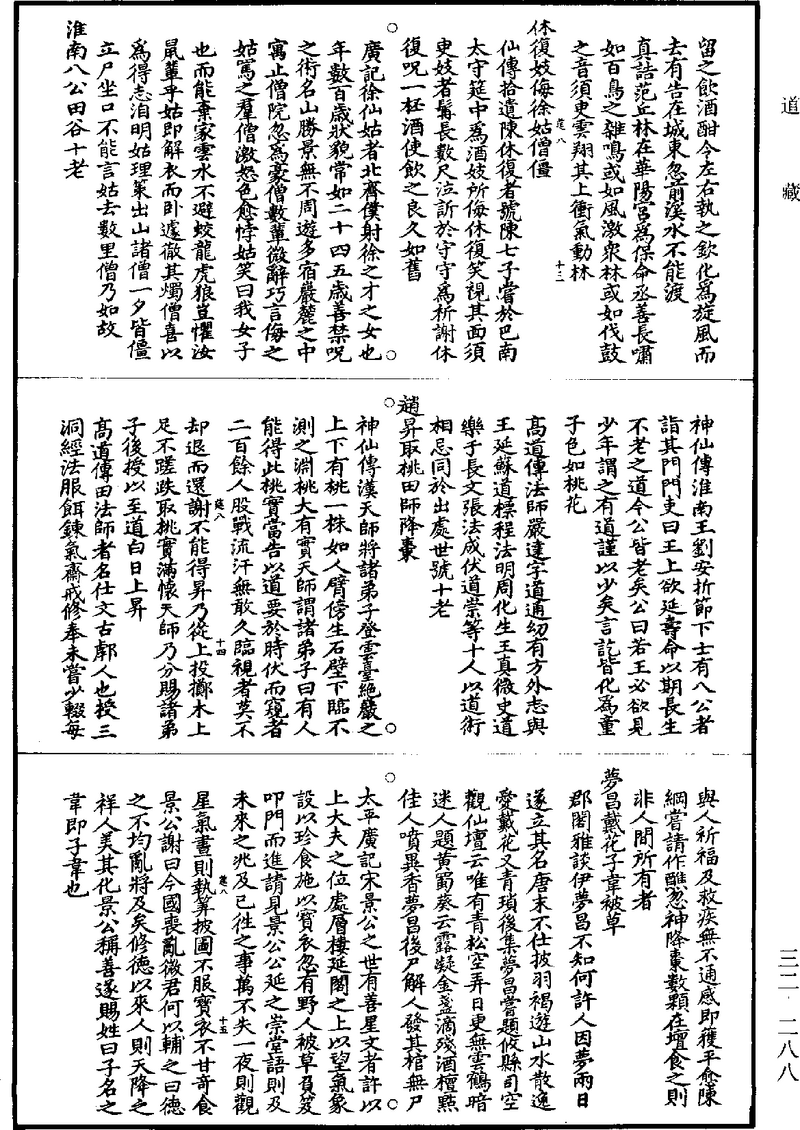 道藏
留之飲酒酣令左右執之欽化爲旋風而
去有告在城東忽前溪水不能渡
真誥范丘林在華陽宮爲保命丞善長嘯
如百鳥之雜鳴或如風激衆林或如伐鼓
之音須臾雲翔其上衝氣動林
莚八
十三
休復妓侮徐姑僧僵
仙傳拾遺陳休復者號陳七子嘗於巴南
太守筵中爲酒妓所侮休復笑視其面須
臾妓者髯長數尺泣訴於守守爲祈謝休
復呪一杯酒使飲之良久如舊
廣記徐仙姑者北齊僕射徐之才之女也
年數百歲狀貌常如二十四五歲善禁呪
之術名山勝景無不周遊多宿巖麓之中
寓止僧院忽爲豪僧數輩微辭巧言侮之
姑罵之羣僧激怒色愈悖姑笑曰我女子
也而能棄家雲水不避蛟龍虎狼豈懼汝
鼠輩乎姑即解衣而卧遽徹其燭僧喜以
爲得志洎明姑理策出山諸僧一夕皆僵
立尸坐口不能言姑去數里僧乃如故
淮南八公田谷十老
神仙傳淮南王劉安折節下士有八公者
詣其門門吏曰王上欲延壽命以期長生
不老之道今公皆老矣公曰若王必欲見
少年謂之有道謹以少矣言訖皆化爲童
子色如桃花
高道傳法師嚴達字道通幼有方外志與
王延蘇道標程法明周化生王真微史道
樂于長文張法成伏道崇等十人以道術
相忘同於出處世號十老
趙昇取桃田師降棗
神仙傳漢天師將諸弟子登雲臺絶嚴之
上下有桃一株如人臂傍生石壁下臨不
測之淵桃大有實天師謂諸弟子曰有人
能得此桃實當告以道要於時伏而窺者
二百餘人股戰流汗無敢久臨視者莫不
莚八
十四
却退而還謝不能得昇乃從上投擲木上
足不蹉跌取桃實滿懷天師乃分賜諸弟
子後授以至道白日上昇
高道傳田法師者名仕文古鄠人也授三
洞經法服餌鍊氣齋戒修奉未嘗少輟每
與人祈福及救疾無不通感即獲平愈陳
綱嘗請作醮忽神降棗數顆在壇食之則
非人間所有者
夢昌戴花子韋被草
郡閣雅談伊夢昌不知何許人因夢兩日
遂立其名唐末不仕披羽褐遊山水散逸
愛戴花又青瑣後集夢昌嘗題攸縣司空
觀仙壇云唯有青松空弄日更無雲鶴暗
迷人題黃蜀葵云露凝金盞滴殘酒檀點
佳人噴異香夢昌後尸解人發其棺無尸
太平廣記宋景公之世有善星文者許以
上大夫之位處層樓延閣之上以望氣象
設以珍食施以寶衣忽有野人被草負笈
叩門而進請見景公公延之崇堂語則及
未來之兆及已徃之事萬不失一夜則觀
莚八
十五
星氣晝則執筭披圖不服寶衣不甘奇食
景公謝曰今國喪亂微君何以輔之曰德
之不均亂將及矣修德以來人則天降之
祥人美其化景公稱善遂賜姓曰子名之
韋即子韋也
三二·二八八